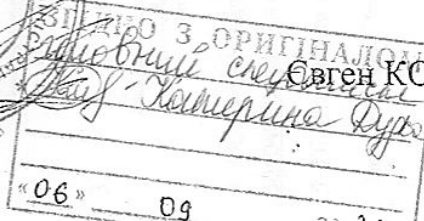 ЗГІДНО З ОРИГІНАЛОМ
Головний спеціаліст
Євген КО
Катерина
«06» 09